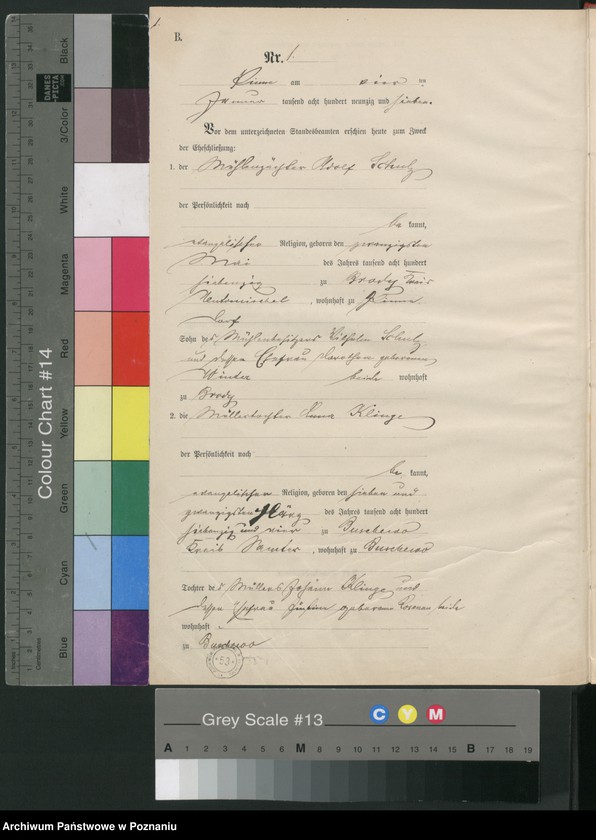 B.
Nr. 1.
Pinne am vier ten
Januar tausend acht hundert neunzig und sieben.
Vor dem unterzeichneten Standesbeamten erschien heute zum Zweck
der Eheschließung:
1. der Mühlenpächter Adolf Schulz
der Persönlichkeit nach
be kannt,
evangelischer Religion, geboren den zwanzigsten
Mai des Jahres tausend acht hundert
siebenzig zu Brody Kreis
Neutomischel, wohnhaft zu Pinne
Dorf
Sohn des Mühlenbesitzers Wilhelm Schulz
und dessen Ehefrau Dorothea geborenen
Winter beide wohnhaft
zu Brody
2. die Müllertochter Anna Klinge
der Persönlichkeit nach
be kannt,
evangelischer Religion, geboren den sieben und
zwanzigsten März des Jahres tausend acht hundert
siebenzig und vier zu
Kreis Samter, wohnhaft zu
Tochter des Müllers Johann Klinge und
dessen Ehefrau geborenen beide
wohnhaft
zu
53
Colour Chart #14
Black
3/Color
White
Magenta
Red
Yellow
Green
Cyan
Blue
DANES-PICTA.COM
Inches
Centimetres
Grey Scale #13
C Y M
A 1 2 3 4 5 6 M 8 9 10 11 12 13 14 15 B 17 18 19
Archiwum Państwowe w Poznaniu